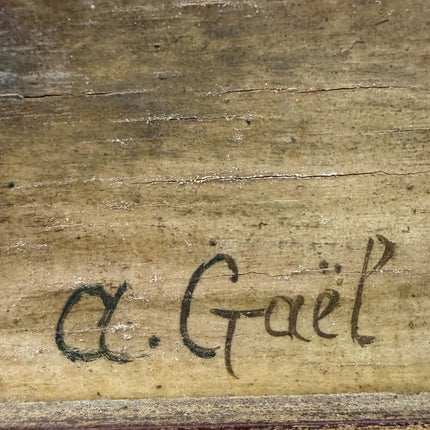 a. Gaël